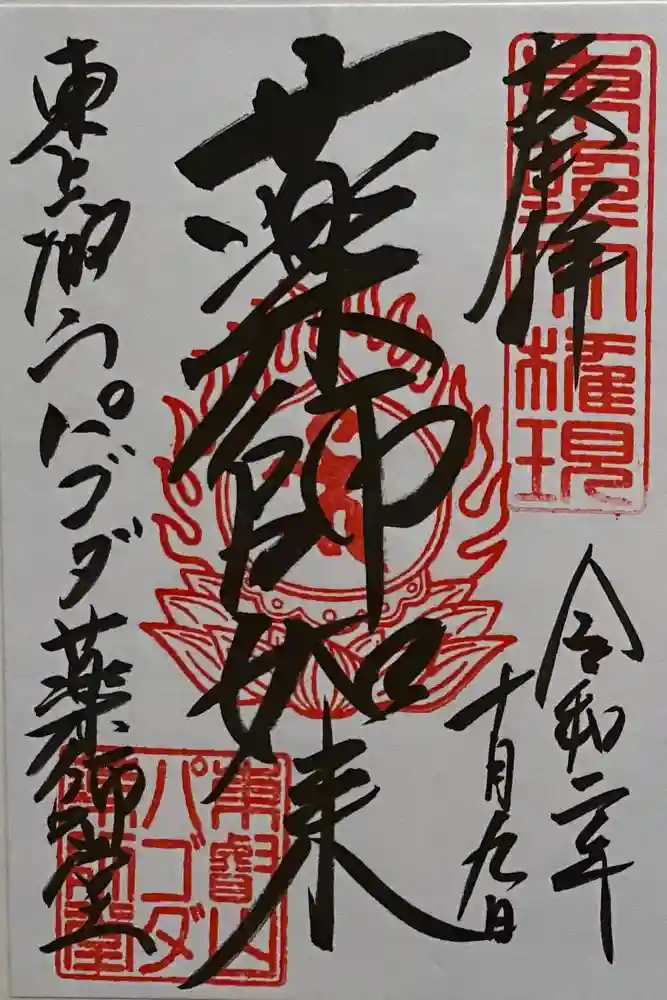 東照大権現
奉拝
令和二年
十月九日
薬師如来
東叡山パゴダ薬師堂
東叡山
パゴダ
薬師堂